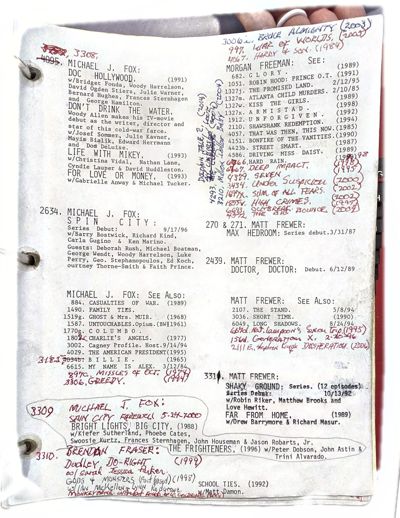 3308.
4095. MICHAEL J. FOX:
DOC HOLLYWOOD. (1991)
w/Bridget Fonda, Woody Harrelson,
David Ogden Stiers, Julie Warner,
Barnard Hughes, Frances Sternhagen
and George Hamilton.
DON'T DRINK THE WATER.
Woody Allen makes his TV-movie
debut as the writer, director and
star of this cold-war farce.
w/Josef Sommer, Julie Kavner,
Mayim Bialik, Edward Herrmann
and Dom DeLuise.
LIFE WITH MIKEY. (1993)
w/Christina Vidal, Nathan Lane,
Cyndie Lauper & David Huddleston.
FOR LOVE OR MONEY. (1993)
w/Gabrielle Anway & Michael Tucker.
2634. MICHAEL J. FOX:
SPIN CITY:
Series Debut: 9/17/96
w/Barry Bostwick, Richard Kind,
Carla Gugino & Ken Marino.
Guests: Deborah Rush, Michael Boatman,
George Wendt, Woody Harrelson, Luke
Perry, Geo. Stephanopoulos, Ed Koch,
Courtney Thorne-Smith & Faith Prince.
MICHAEL J. FOX: See Also:
884. CASUALTIES OF WAR. (1989)
1490. FAMILY TIES.
1519g. GHOST & Mrs. MUIR. (1968)
1587. UNTOUCHABLES.Opium.(BW)(1961)
1770g. COLUMBO.
1802. CHARLIE'S ANGELS. (1977)
3002. Cagney Profile. Host.
4029. THE AMERICAN PRESIDENT(1995)
3182 BILLIE. (1965)
6615. MY NAME IS ALEX. 3/12/84
8970. MISSILES OF OCT. (1974)
3306. GREEDY.
3309 MICHAEL J. FOX:
SPIN CITY FAREWELL 5-24-2000
BRIGHT LIGHTS, BIG CITY. (1988)
w/Kiefer Sutherland, Phoebe Cates,
Swoosie Kurtz, Frances Sternhagen, John Houseman & Jason Robards, Jr.
3310. BRENDAN FRASER:
DUDLEY DO-RIGHT (1999)
w/ Sarah Jessica Parker
GODS & MONSTERS (1998)
w/Ian McKellen, Lynn Redgrave
THE FRIGHTENERS. (1996) w/Peter Dobson, John Astin &
Trini Alvarado.
SCHOOL TIES. (1992)
w/Matt Damon.
3006. BRUCE ALMIGHTY (2003)
997. WAR OF WORLDS. (2005)
4067. HARRY & SON. (1984)
MORGAN FREEMAN: SEE:
682. GLORY. (1989)
1051. ROBIN HOOD: PRINCE O.T. (1991)
1327i. THE PROMISED LAND. 2/12/95
1327n. ATLANTA CHILD MURDERS. 2/10/85
1032w. KISS THE GIRLS. (1998)
1327x. AMISTAD. (1998)
1912. UNFORGIVEN. (1992)
2110. SHAWSHANK REDEMPTION. (1994)
4057. THAT WAS THEN, THIS NOW.(1985)
4101. BONFIRE OF THE VANITIES.(1990)
4423b. STREET SMART. (1987)
4586. DRIVING MISS DAISY. (1989)
HARD RAIN.
DEEP IMPACT.
SEVEN
UNDER SUSPICION
SUM OF ALL FEARS (2002)
HIGH CRIMES. (2002)
270 & 271. MATT FREWER:
MAX HEDROOM: Series debut.3/31/87
2439. MATT FREWER:
DOCTOR, DOCTOR: Debut. 6/12/89
MATT FREWER: See Also:
2107. THE STAND. 5/8/94
3036. SHORT TIME. (1990)
6049. LONG SHADOWS. 8/24/94
Generation X. 2-20-96
2111E. Stephen King's DESPERATION (2006)
331 MATT FREWER:
SHAKY GROUND: Series. (12 episodes)
Series Debut: 10/13/92
w/Robin Riker, Matthew Brooks and
Love Hewitt.
FAR FROM HOME. (1989)
w/Drew Barrymore & Richard Masur.